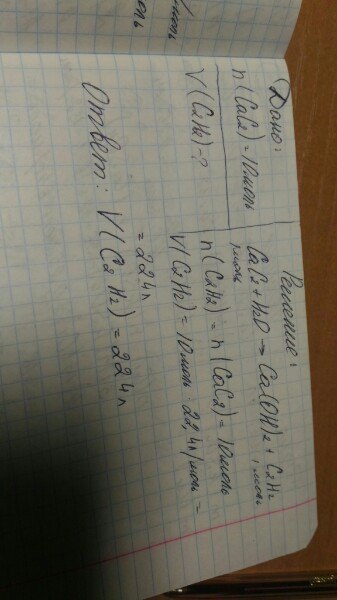 Дано:
n(CaC2) = 10моль
V(C2H2) - ?
Решение:
CaC2 + H2O → Ca(OH)2 + C2H2
1моль 1моль
n(C2H2) = n(CaC2) = 10моль
V(C2H2) = 10моль · 22,4л/моль =
= 224л
Ответ: V(C2H2) = 224л